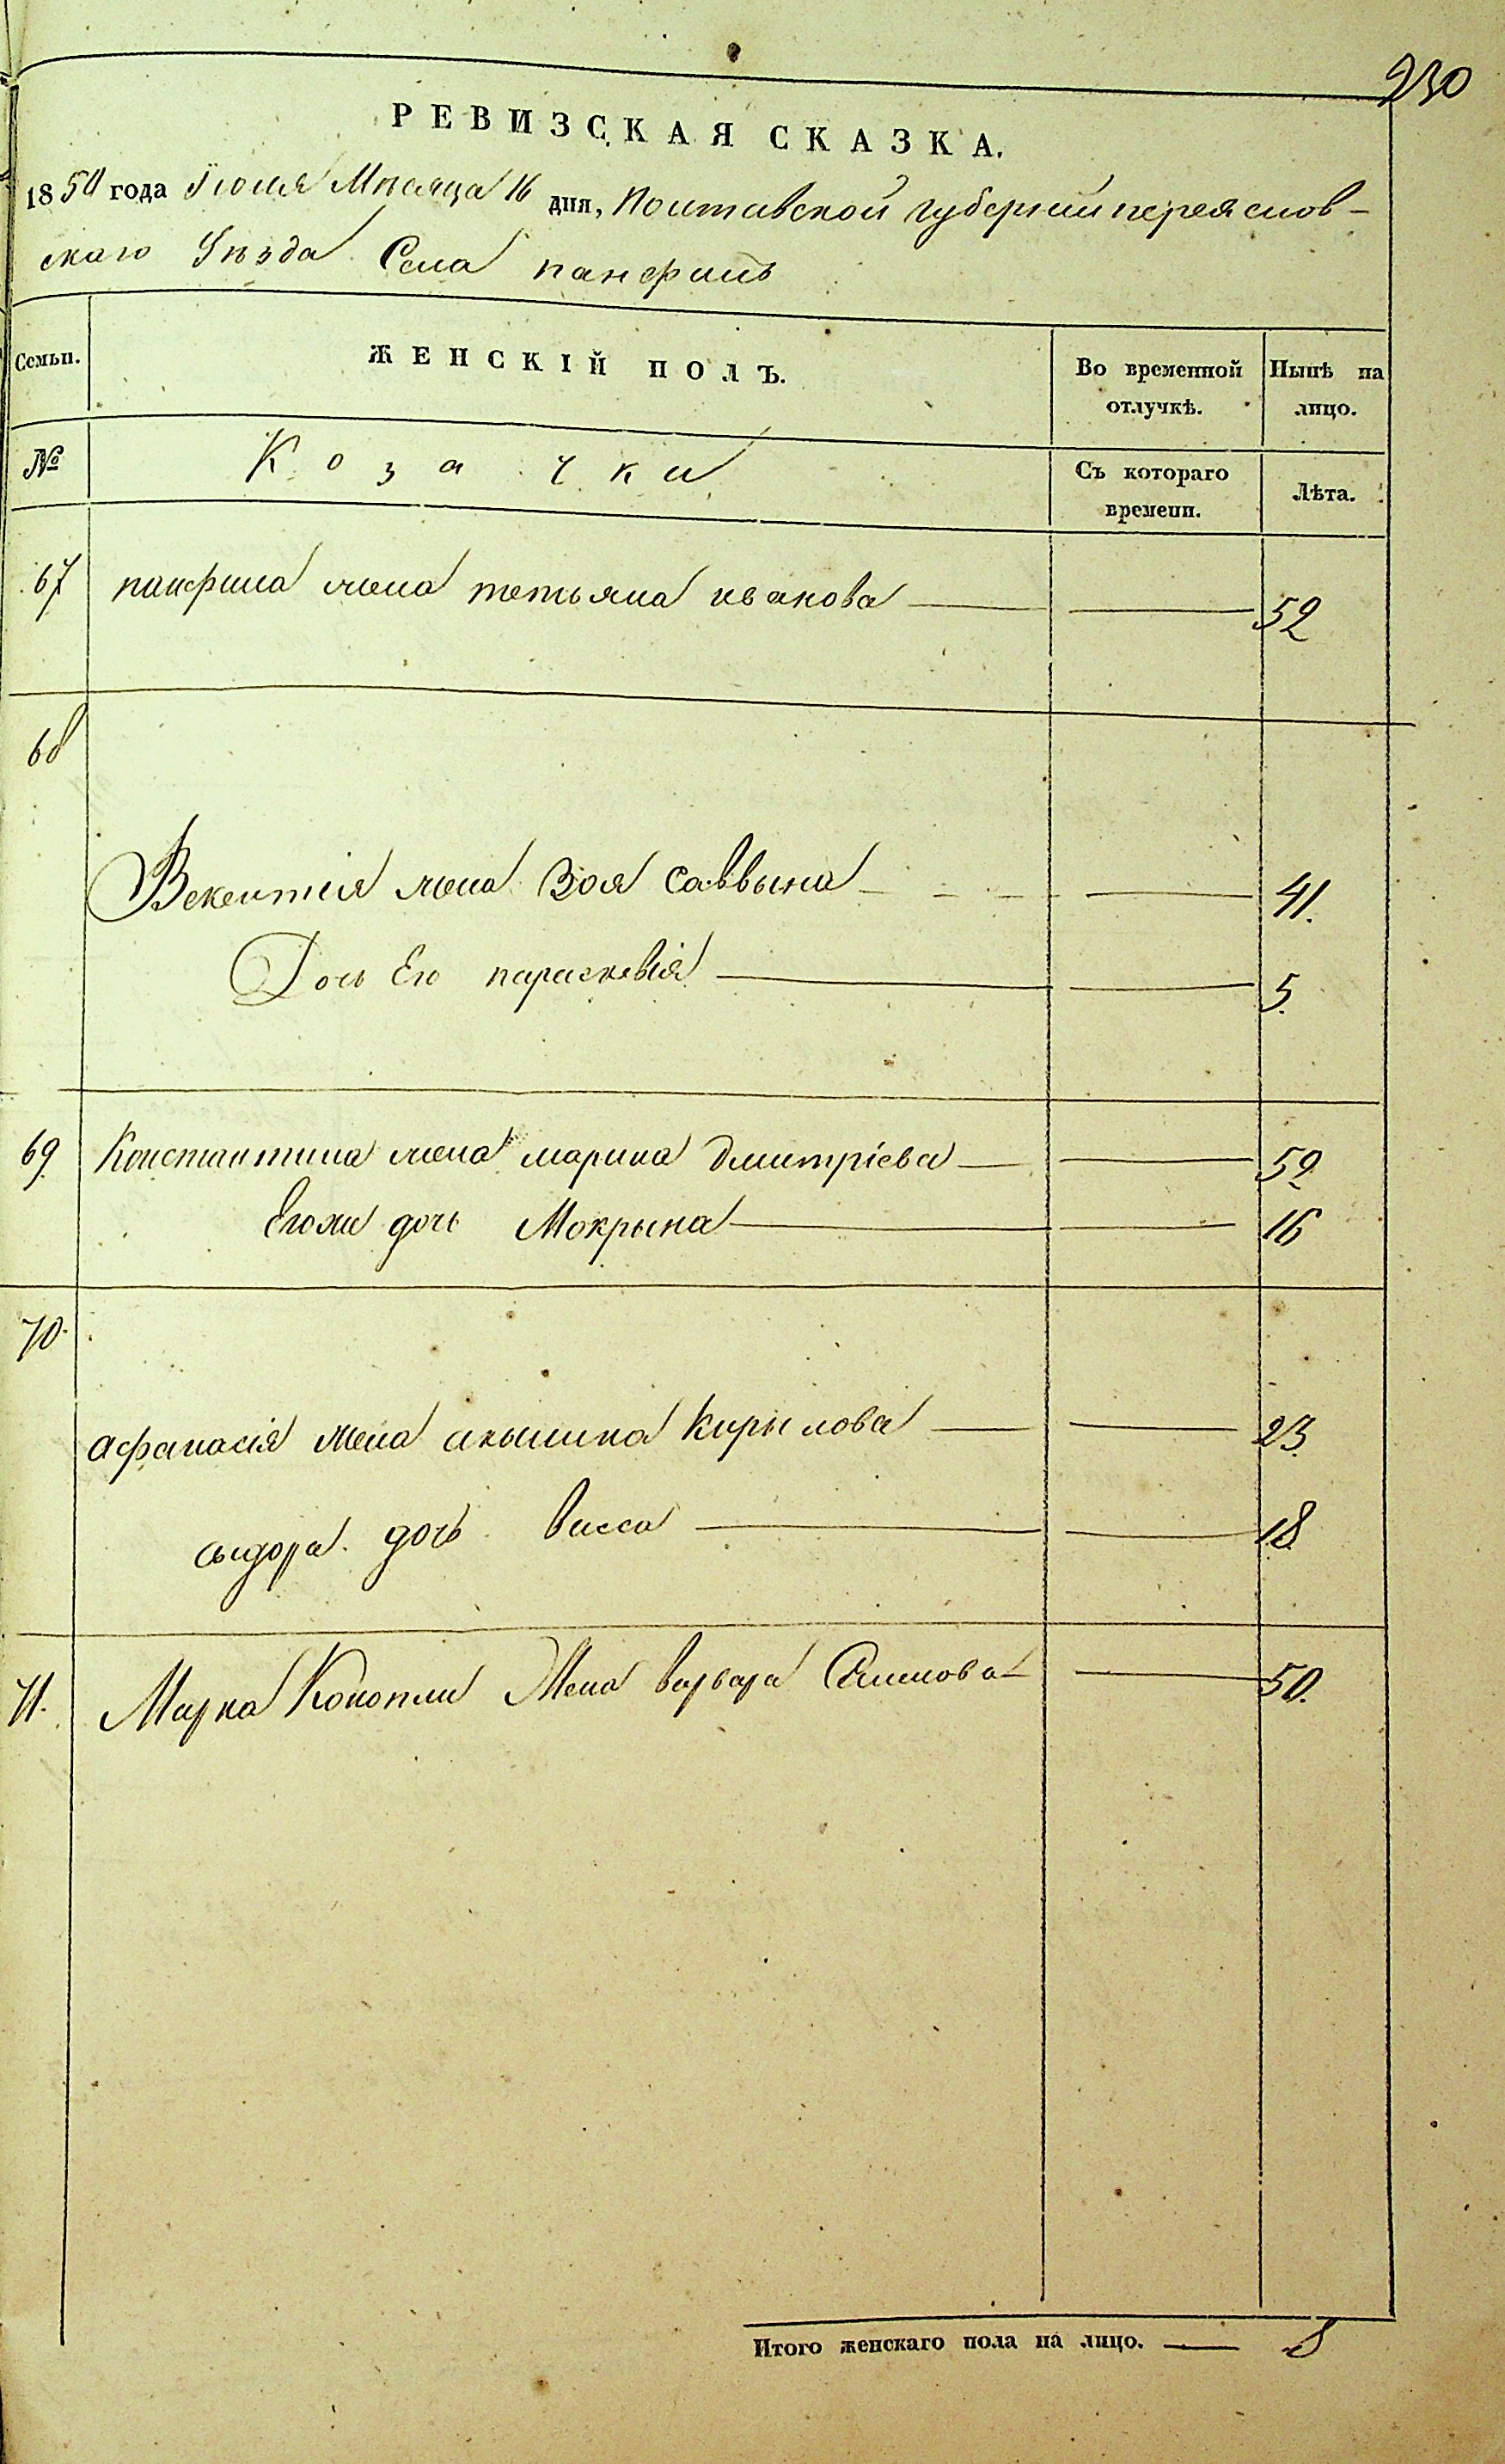 230
РЕВИЗСКАЯ СКАЗКА.
1850 года Іюля Мѣсяца 16 дня, Полтавской губерніи переяслов-
скаго Уѣзда Села панфилъ
Семьи. ЖЕНСКІЙ ПОЛЪ. Во временной отлучкѣ. Нынѣ на лицо.
№ Козачки Съ котораго времени. Лѣта.
67 панфила жена тетьяна иванова — — 52
68
Векентія жена Зоя Саввына — — 41.
Дочь Его параскевія — — 5.
69 Константина жена марина Дмитріева — — 52
Егоже дочь Мокрына — — 16
70.
афанасія жена акылина Кирылова — — 23.
сыдора дочь васса — — 18
71. Марка Конопли Жена варвара — — 50.
Итого женскаго пола на лицо. — 8